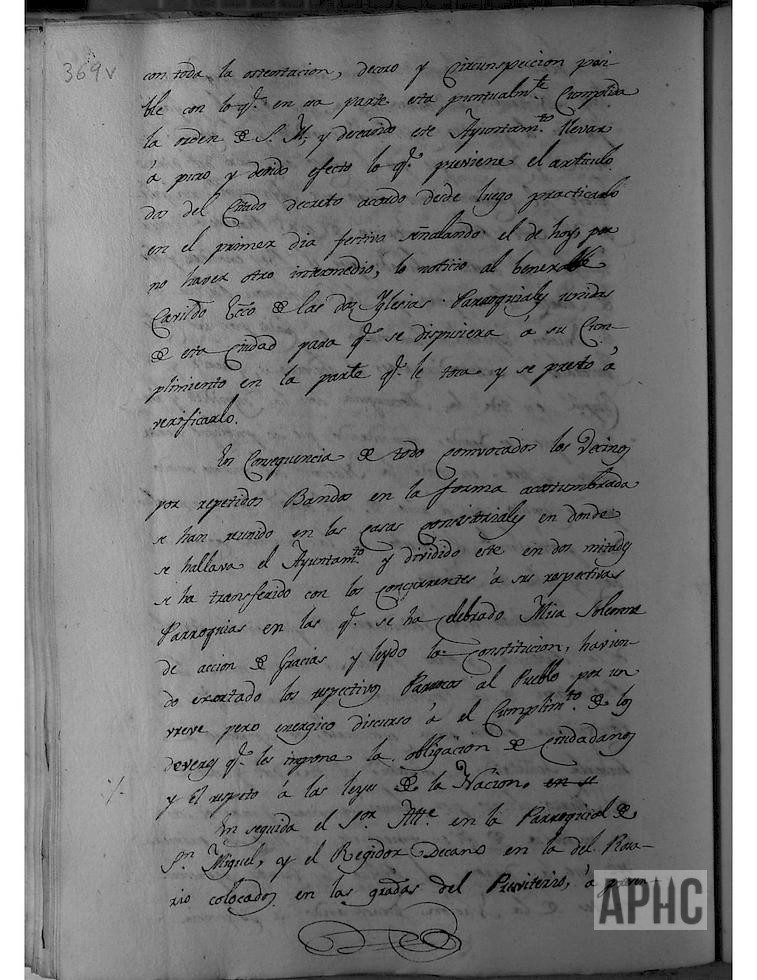 369v
con toda la ostentacion, decoro y Circunspeccion posi-
ble con lo q.e en esta parte esta puntualm.te Cumplida
la orden de S. M, y deseando este Ayuntam.to llevar
á puro y devido efecto lo q.e previene el articulo
dos del Citado decreto acordo desde luego practicarlo
en el primer dia festivo señalando el de hoy por
no haver otro intermedio, lo noticio al Venerable
Cavildo Ecco de las dos Yglesias Parroquiales unidas
de esta Ciudad para q.e se dispusiera á su Cum-
plimiento en la parte q.e le toca y se presto á
verificarlo.
En Consequencia de todo comvocados los Vecinos
por repetidos Bandos en la forma acostumbrada
se han reunido en las casas consistoriales en donde
se hallava el Ayuntam.to y dividido este en dos mitades
se ha transferido con los concurrentes á sus respectivas
Parroquias en las q.e se ha celebrado Misa Solemne
de accion de Gracias y leydo la Constitucion, havien-
do exortado los respectivos Parrocos al Pueblo por un
vreve pero energico discurso á el Cumplim.to de los
deveres q.e les impone la obligacion de Ciudadanos
y El respeto á las leyes de la Nacion. en se
En seguida el S.or Alc.e en la Parroquial de
S.n Miguel, y el Regidor Decano en la del Rosa-
rio colocados en las gradas del Presviterio, á
APHC